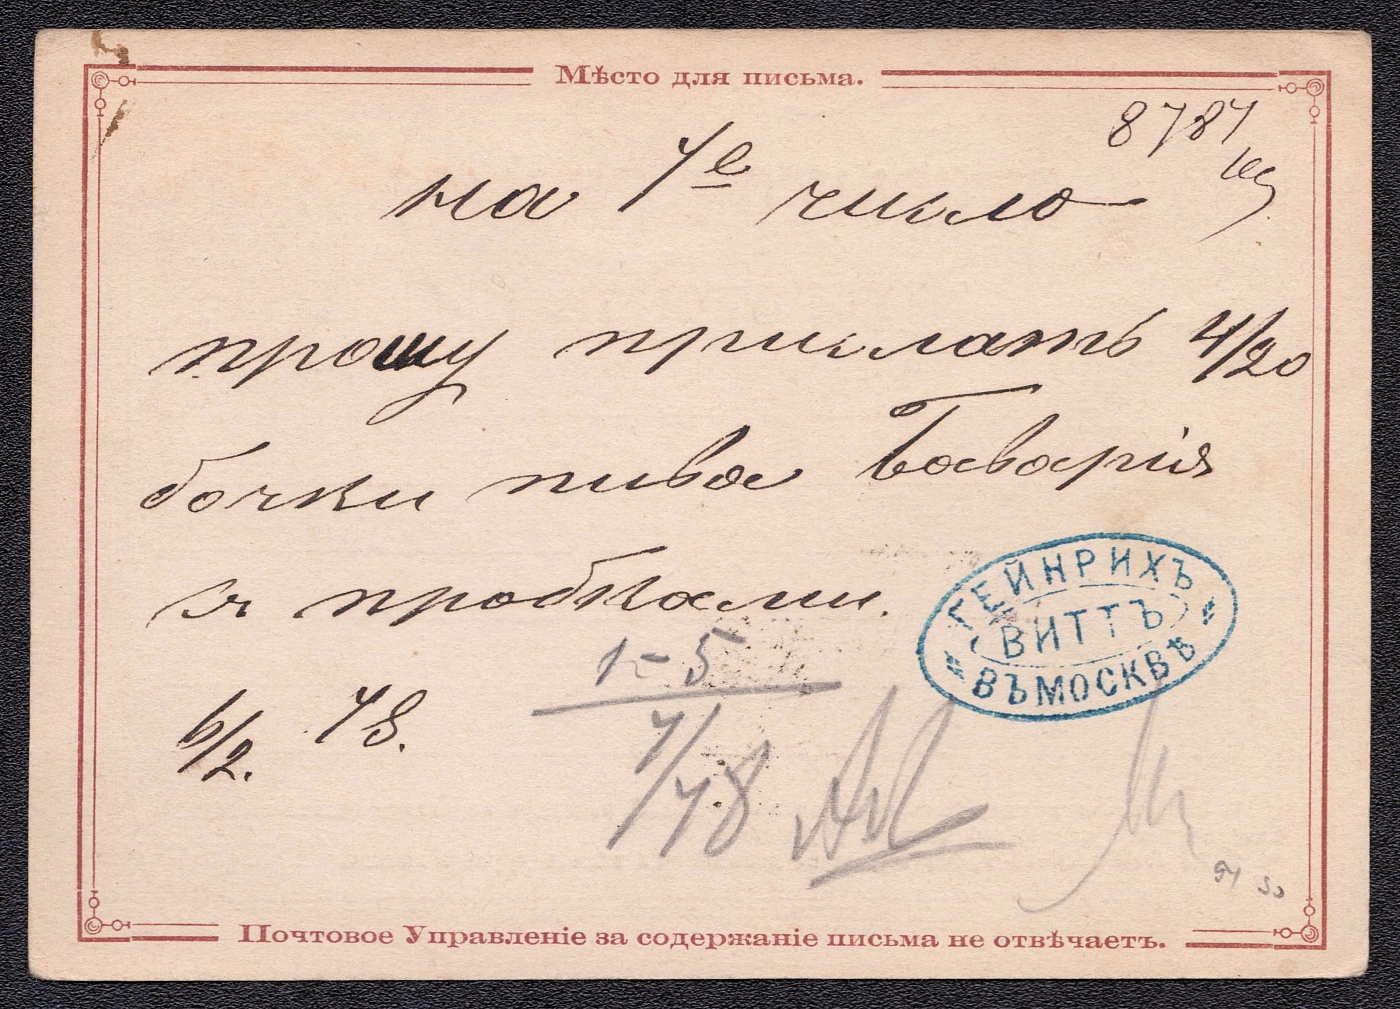 Мѣсто для письма.
8787
на 7е число
прошу прислать 4/20
бочки пива Баварія
съ пробками.
ГЕЙНРИХЪ
ВИТТЪ
ВЪ МОСКВѢ
1-5
6/2. 78.
7/78
Почтовое Управленіе за содержаніе письма не отвѣчаетъ.